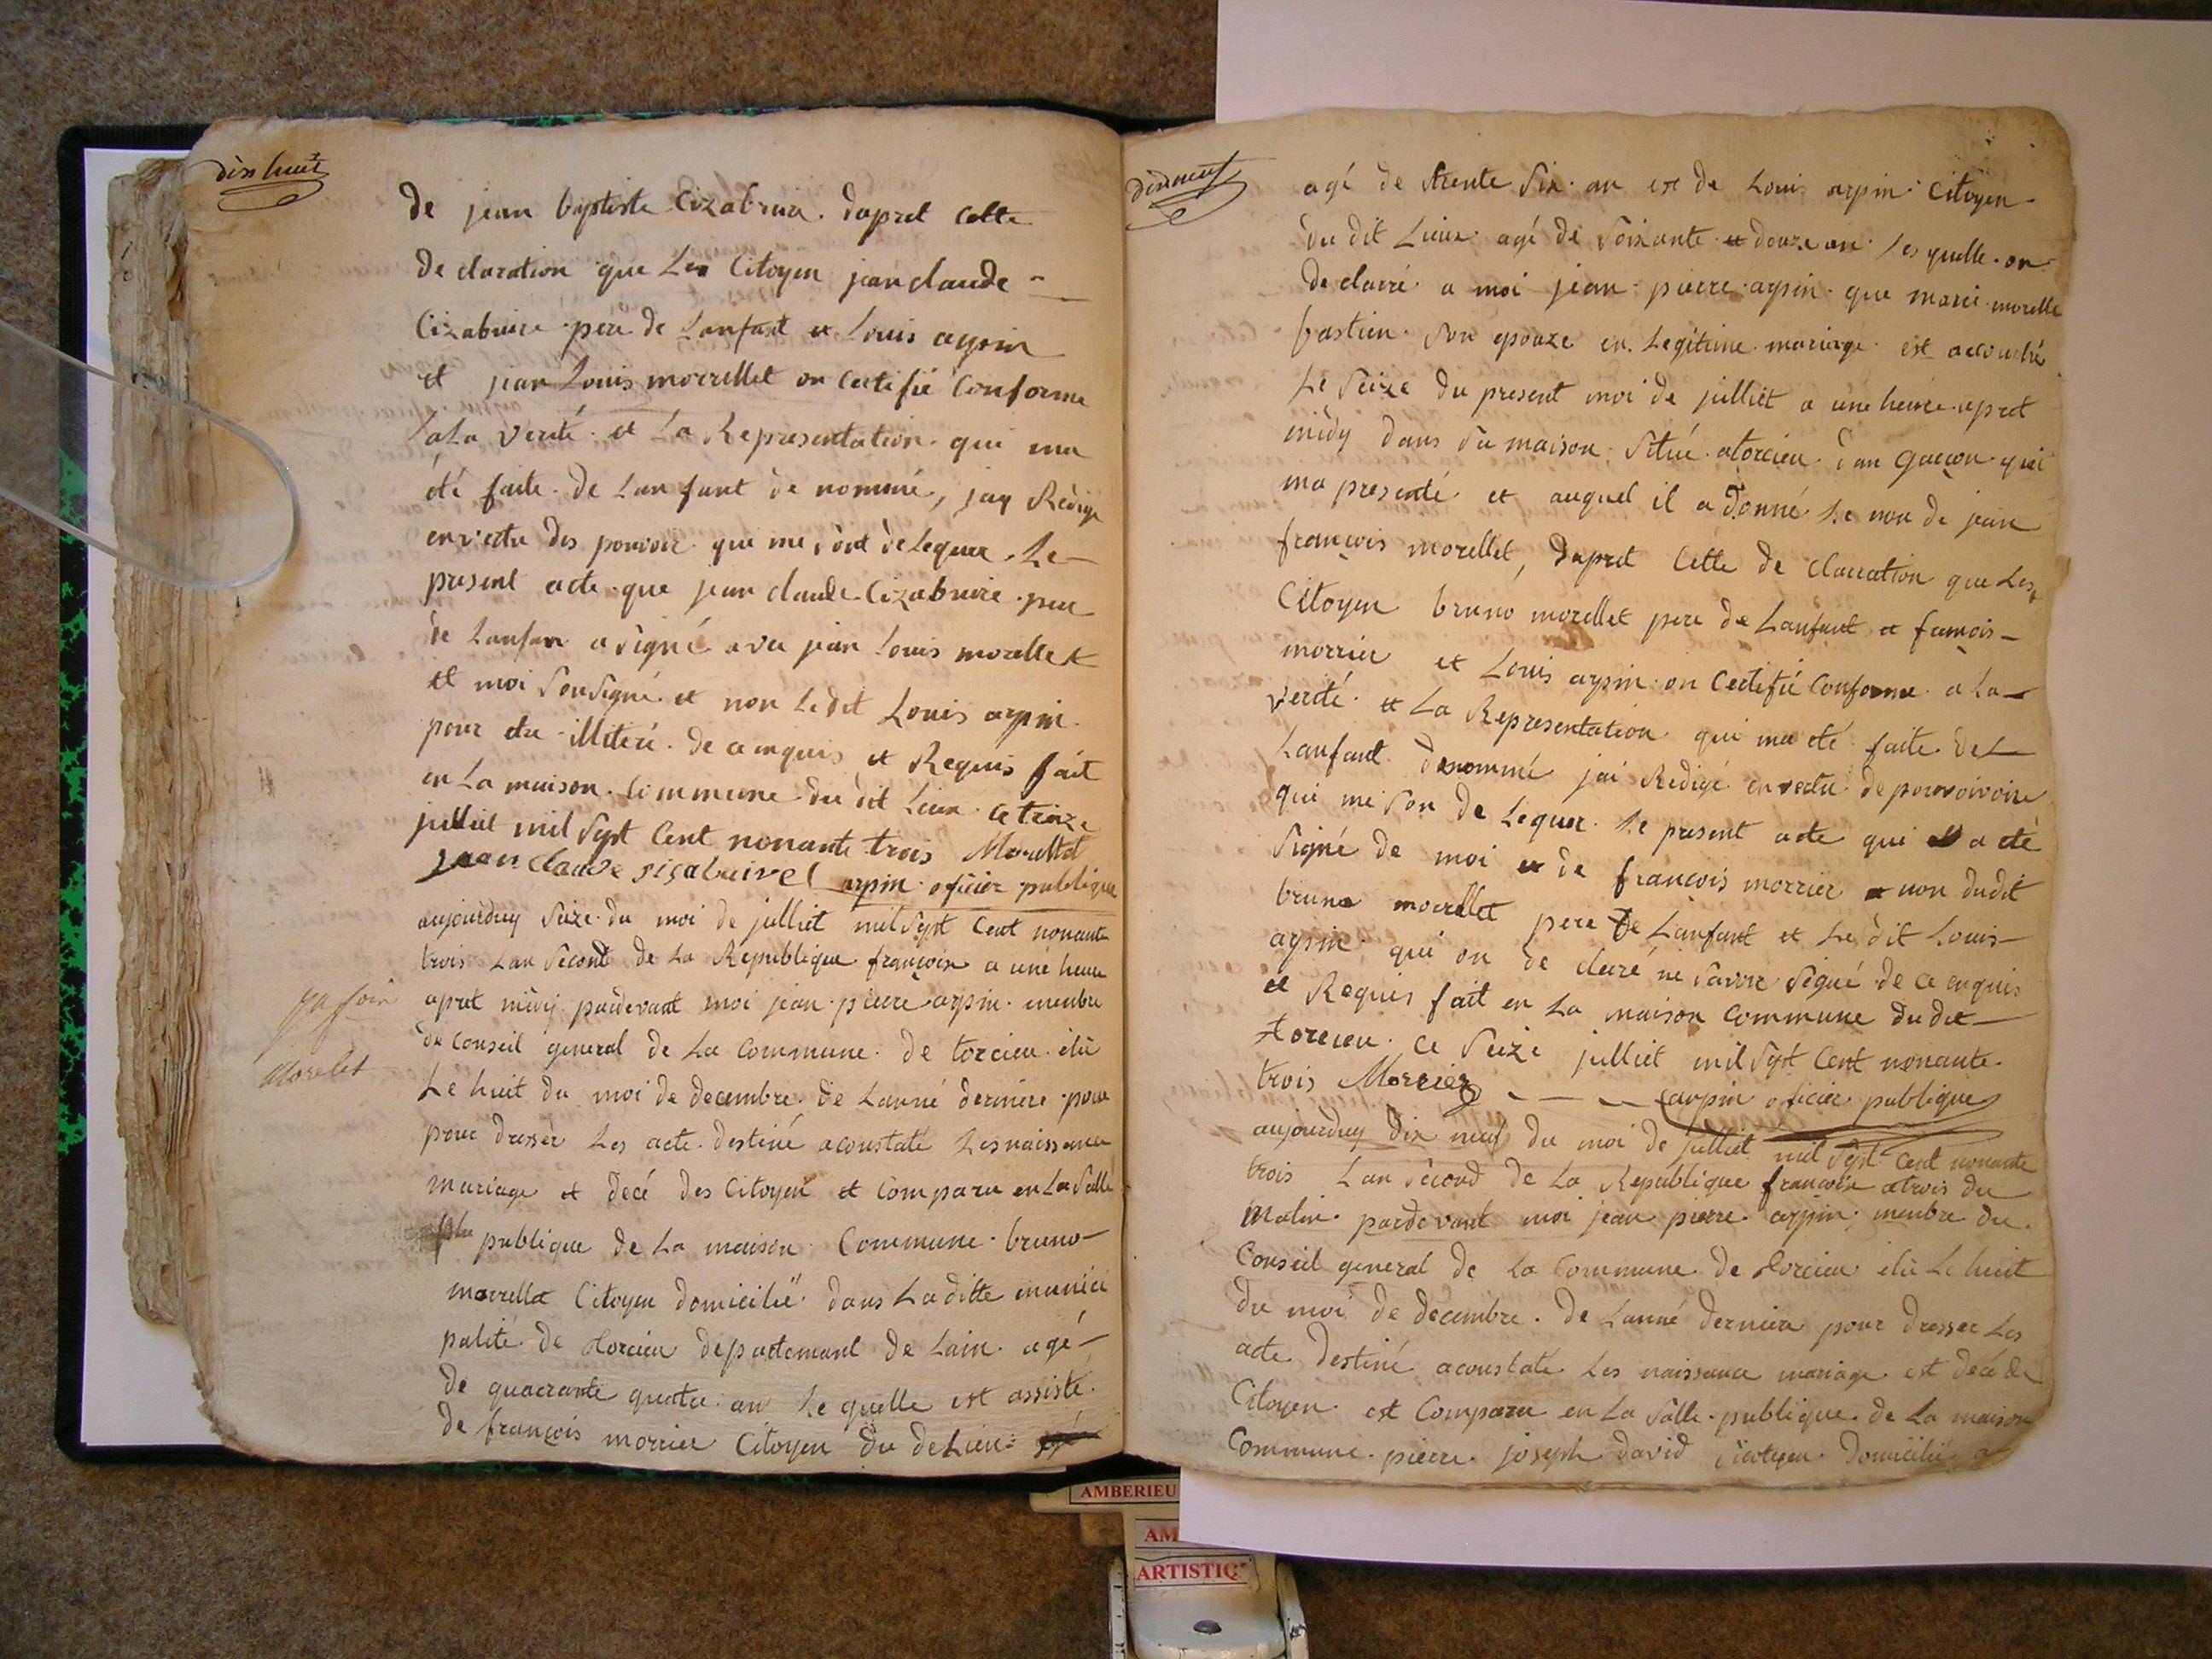 dix huit
de jean baptiste Cizabuire. dapret cette
de claration que Les Citoyen jean claude
Cizabuire pere de Lanfant et Louis arpin
et jean Louis morrellet on certifié Conforme
a La verité et La Representation qui ma
été faite de Lanfant dé nommé, jay Rédigé
en vertu des pouvoir que me sont déleguer Le
present acte que jean claude Cizabuire pere
de Lanfan a signé avec jean Louis morellet
et moi Sousigné et non Ledit Louis arpin
pour etre illiteré de ce enquis et Requis fait
en La maison Commune du dit Lieu ce treize
julliet mil Sept Cent nonante trois Morellet
jean claude sisabuire arpin oficier publique
aujourduy Seize du moi de julliet mil Sept Cent nonante
trois Lan Second de La Republique françoise a une heure
apret midy pardevant moi jean pierre arpin menbre
du Conseil general de La Commune de torcieu élu
Le huit du moi de decembre de Lanné derniere pour
pour dresser Les acte destiné a constaté Les naissance
mariage et decé des Citoyen et Comparu en La Salle
publique de La maison Commune bruno
morellet Citoyen domicilié dans La ditte munici
palité de torcieu departement de Lain agé
de quarante quatre an Le quelle est assisté
de françois morrier Citoyen du de Lieu
morelet
dix neuf
agé de trente Six an et de Louis arpin Citoyen
du dit Lieux agé de Soixante et douze an Les quelle on
declaré a moi jean pierre arpin que marie morelle
bastien Son epouze en Legitime mariage est accouché
Le Seize du present moi de julliet a une heure apret
midy dans Sa maison Situé a torcieu dun garçon qui
ma presenté et auquel il a donné Le nom de jean
françois morellet, dapret Cette de claration que Les
Citoyen bruno morellet pere de Lanfant et françois
morrier et Louis arpin on Certifié Conforme a La
verité et La Representation qui ma eté faite de L
Lanfant denommé jai Redigé en vertu de pouvoivoire
qui me Son de Leguer Le present acte qui a eté
Signé de moi et de françois morrier et non dudit
bruno morellet pere de Lanfant et Le dit Louis
arpin qui on de claré ne Savoir Signé de ce enquis
et Requis fait en La maison Commune du dit
torcieu Ce Seize julliet mil Sept Cent nonante
trois Morrier arpin oficier publique
aujourduy dix neuf du moi de julliet mil Sept Cent nonante
trois Lan Second de La Republique françoise a trois du
matin pardevant moi jean pierre arpin menbre du
Conseil general de La Commune de torcieu élu Le huit
du moi de decembre de Lanné derniere pour dresser Les
acte destiné a constaté Les naissance mariage est decé de
Citoyen est Comparu en La Salle publique de La maison
Commune pierre joseph david citoyen domicilié a
AMBERIEU
AM
ARTISTIQ